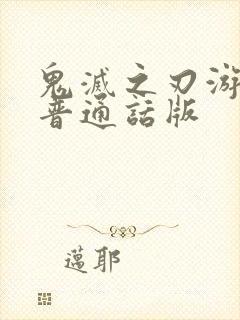 鬼滅之刃游
普通話版
邁耶